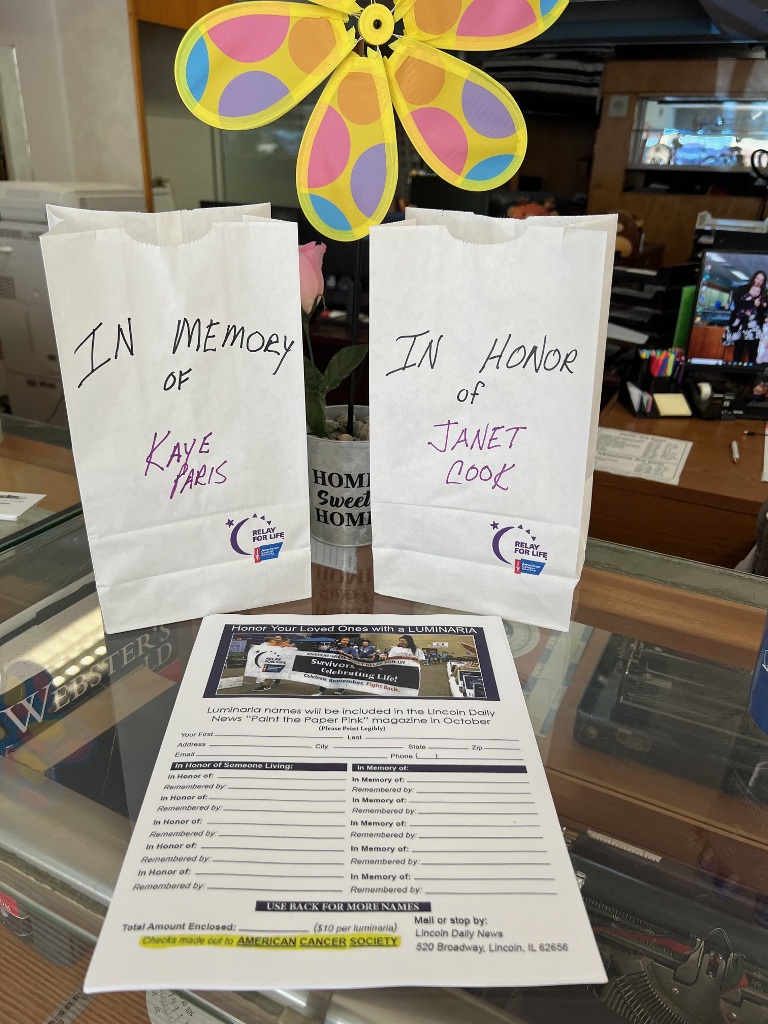 IN MEMORY
OF
KAYE
PARIS
RELAY
FOR LIFE
IN HONOR
of
JANET
COOK
RELAY
FOR LIFE
HOME
Sweet
HOME
WEBSTER'S
Honor Your Loved Ones with a LUMINARIA
Survivors
Celebrating Life!
Celebrate. Remember. Fight Back.
Luminaria names will be included in the Lincoln Daily
News "Paint the Paper Pink" magazine in October
(Please Print Legibly)
Your First Last
Address City State Zip
Email Phone ( )
In Honor of Someone Living:
In Honor of:
Remembered by:
In Honor of:
Remembered by:
In Honor of:
Remembered by:
In Honor of:
Remembered by:
In Honor of:
Remembered by:
In Memory of:
In Memory of:
Remembered by:
In Memory of:
Remembered by:
In Memory of:
Remembered by:
In Memory of:
Remembered by:
In Memory of:
Remembered by:
USE BACK FOR MORE NAMES
Total Amount Enclosed: ($10 per luminaria)
Checks made out to AMERICAN CANCER SOCIETY
Mail or stop by:
Lincoln Daily News
520 Broadway, Lincoln, IL 62656